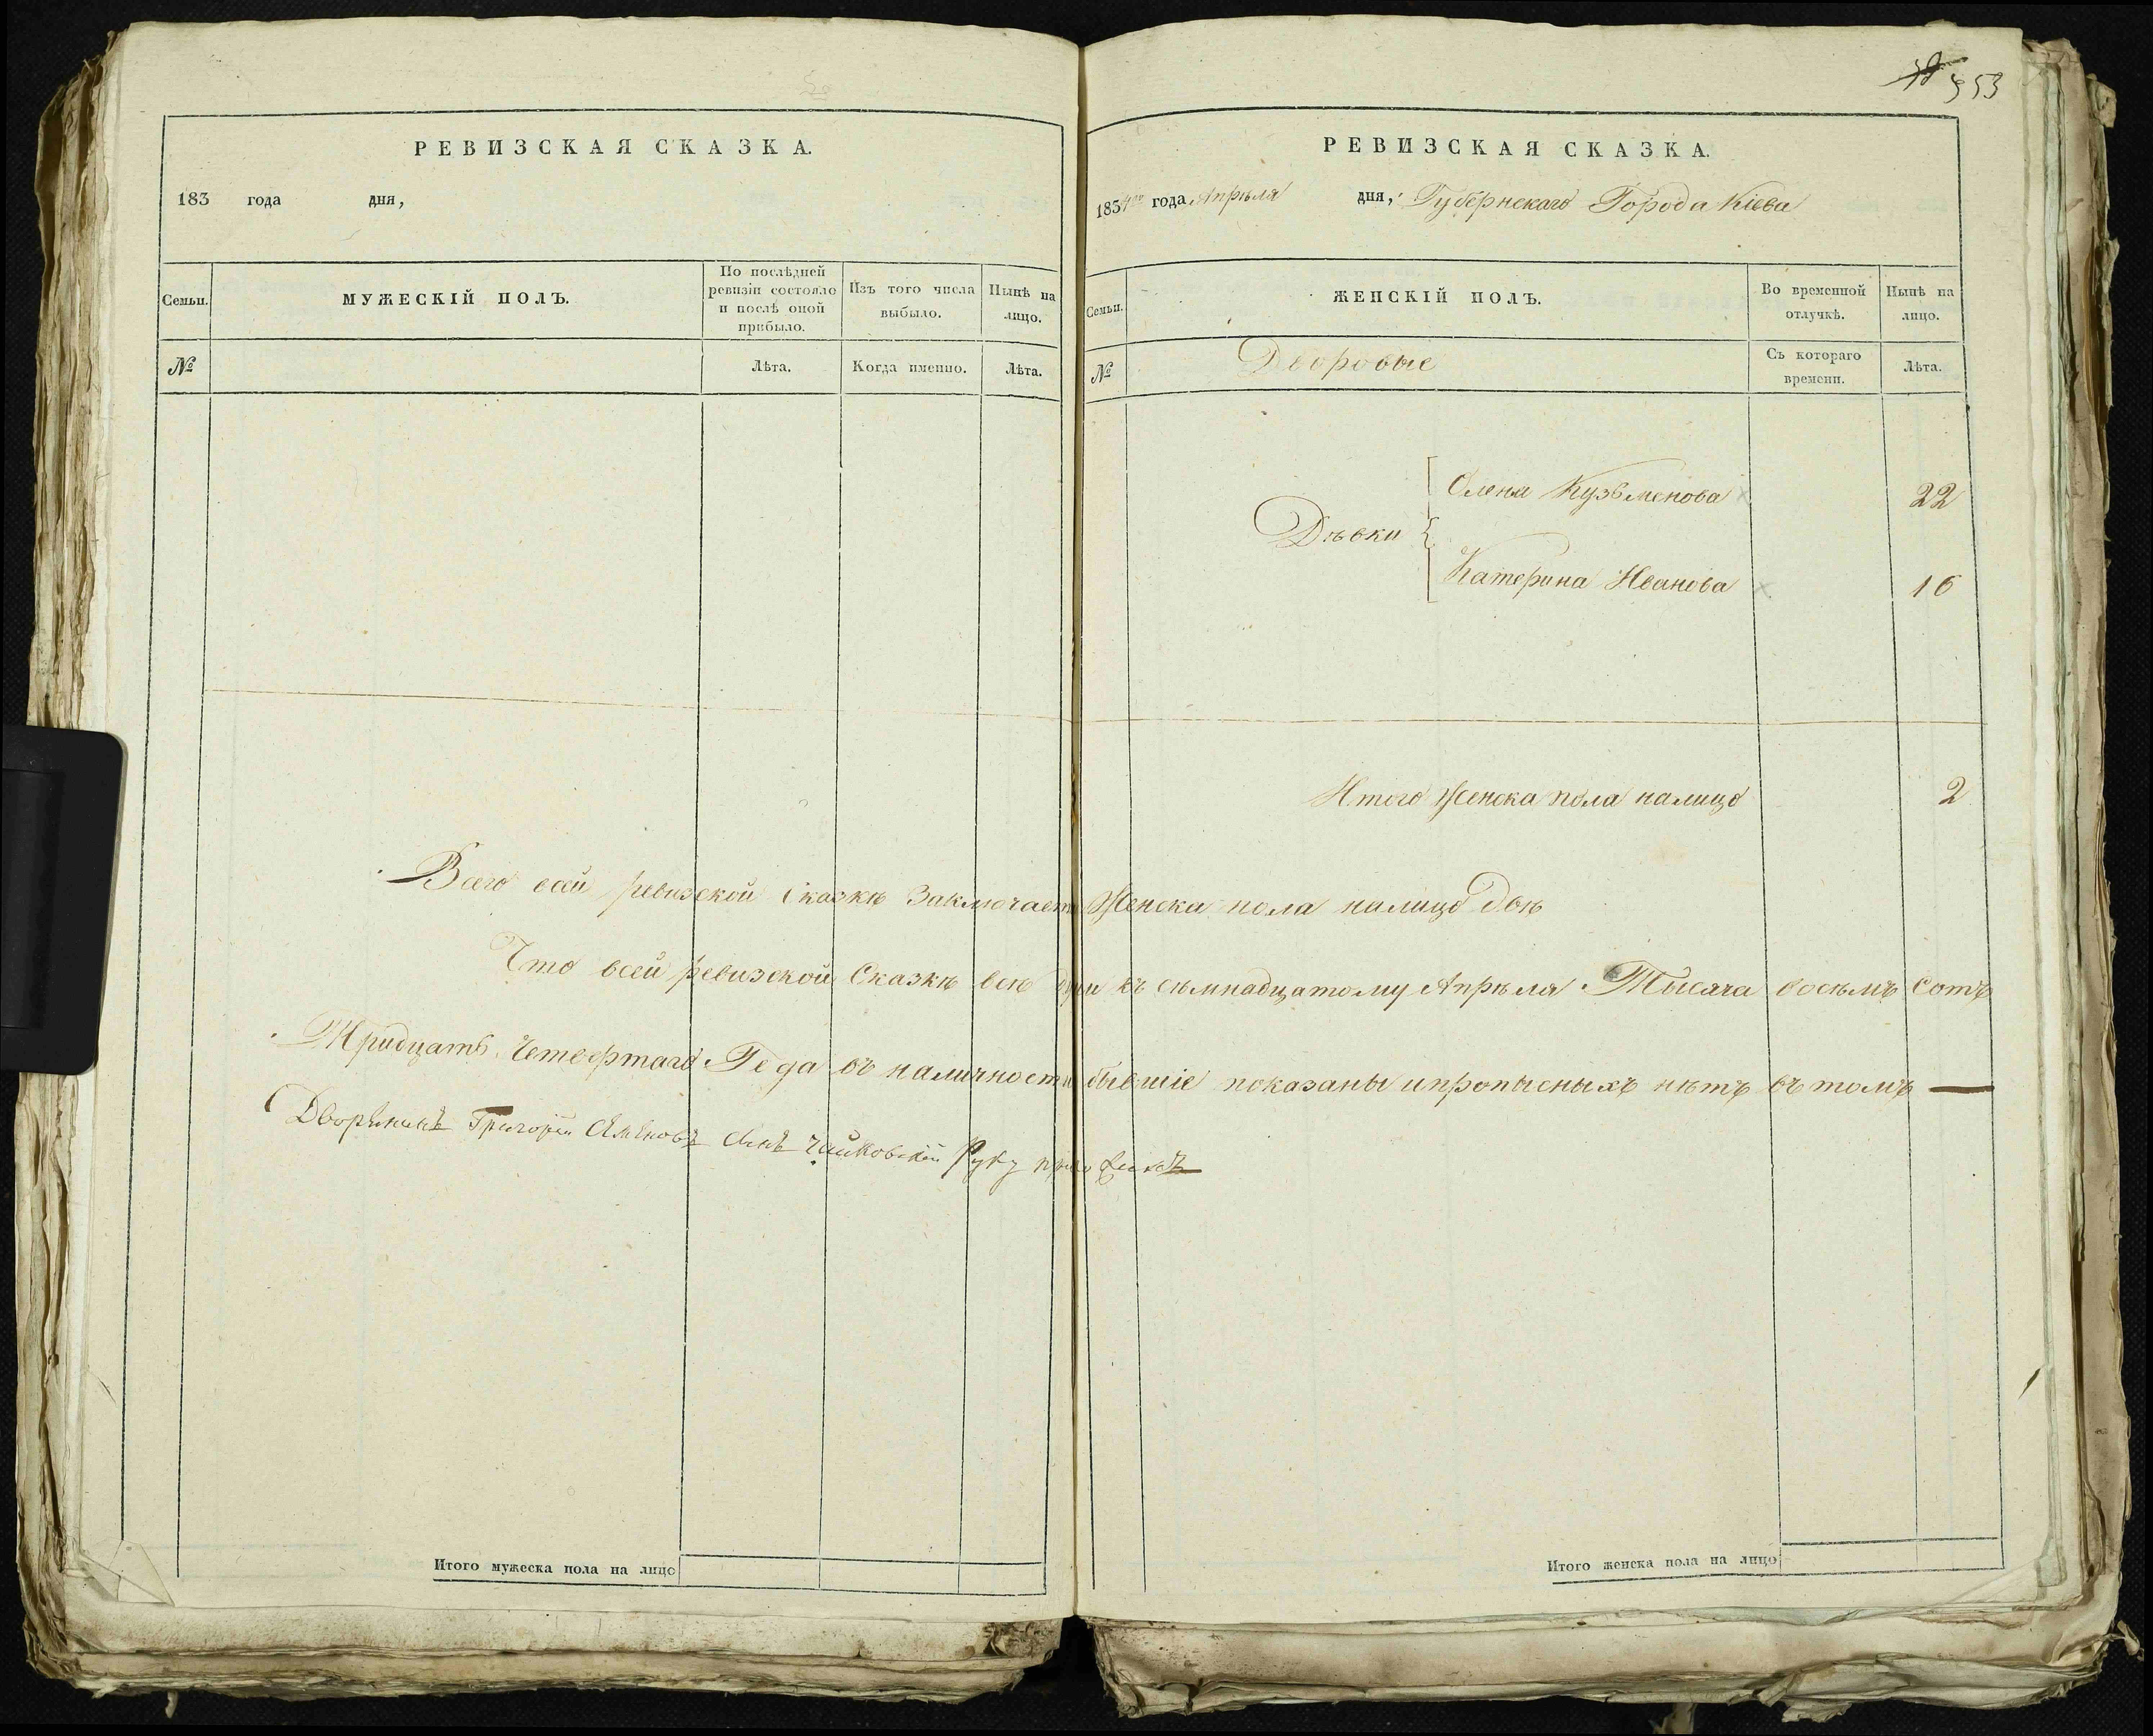 РЕВИЗСКАЯ СКАЗКА.
183 года дня,
Семьи.
МУЖЕСКІЙ ПОЛЪ.
По послѣдней ревизіи состояло и послѣ оной прибыло.
Изъ того числа выбыло.
Нынѣ на лицо.
№
Лѣта.
Когда именно.
Лѣта.
53
РЕВИЗСКАЯ СКАЗКА.
1834го года Апрѣля дня, Губернскаго Города Кіева
Семьи.
ЖЕНСКІЙ ПОЛЪ.
Во временной отлучкѣ.
Нынѣ на лицо.
№
Дворовые
Съ котораго времени.
Лѣта.
Олена Кузьменова 22
Дѣвки
Катерина Иванова 16
Итого женска пола налицо 2
Всего всей ревизской Сказкѣ Заключает Женска пола налицо двѣ
Что всей ревизской Сказкѣ всѣ души къ сѣмнадцатому Апрѣля Тысяча восѣмъ Сотъ
Тридцать Четвертаго Года въ наличности бывшіе показаны ипрописныхъ нѣтъ вътомъ
Дворенинъ Григорій Семеновъ Синъ Чайковскій Руку приложилъ
Итого мужеска пола на лицо
Итого женска пола на лицо